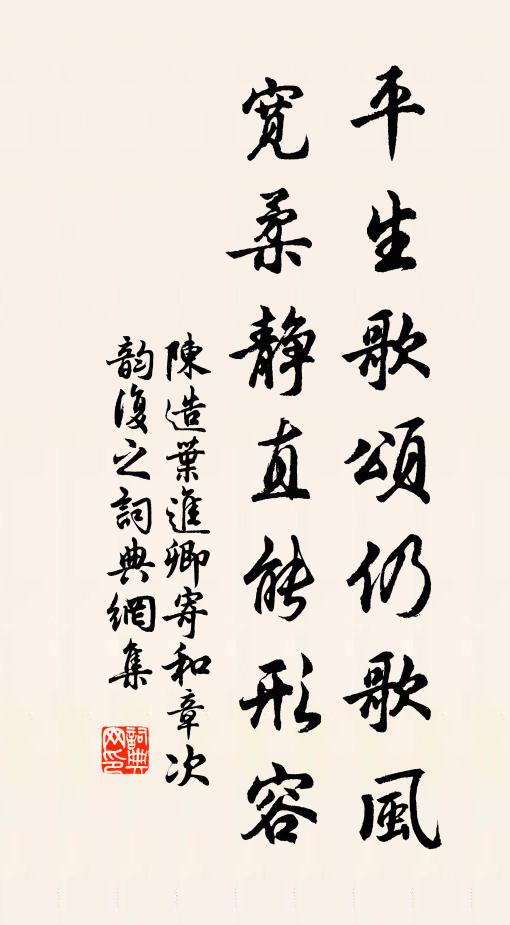 平生歌頌仍歌風
寬柔靜直能形容
陳造葉進卿寄和章次
韵復之詞典網集
詞典網印